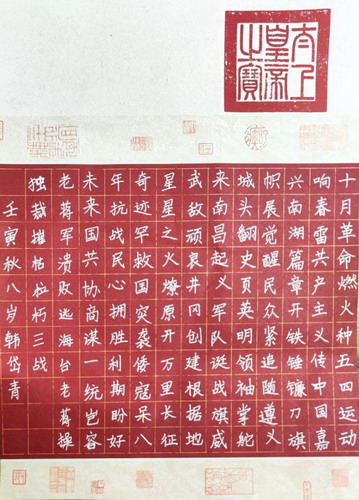 太上
皇帝
之寶
十月革命燃火种五四运动
响春雷共产主义传中国嘉
兴南湖篇章开铁锤镰刀旗
帜展觉醒民众紧追随遵义
城头翻史页英明领袖掌舵
来南昌起义军队诞战旗威
武敌顽哀井冈创建根据地
星星之火燎原开万里长征
奇迹罕救国突袭倭寇呆八
年抗战民心拥胜利期盼好
未来国共协商谋一统岂容
老蒋军溃败逃海台老蒋操
独裁摧枯拉朽三战
壬寅秋八岁韩岱青